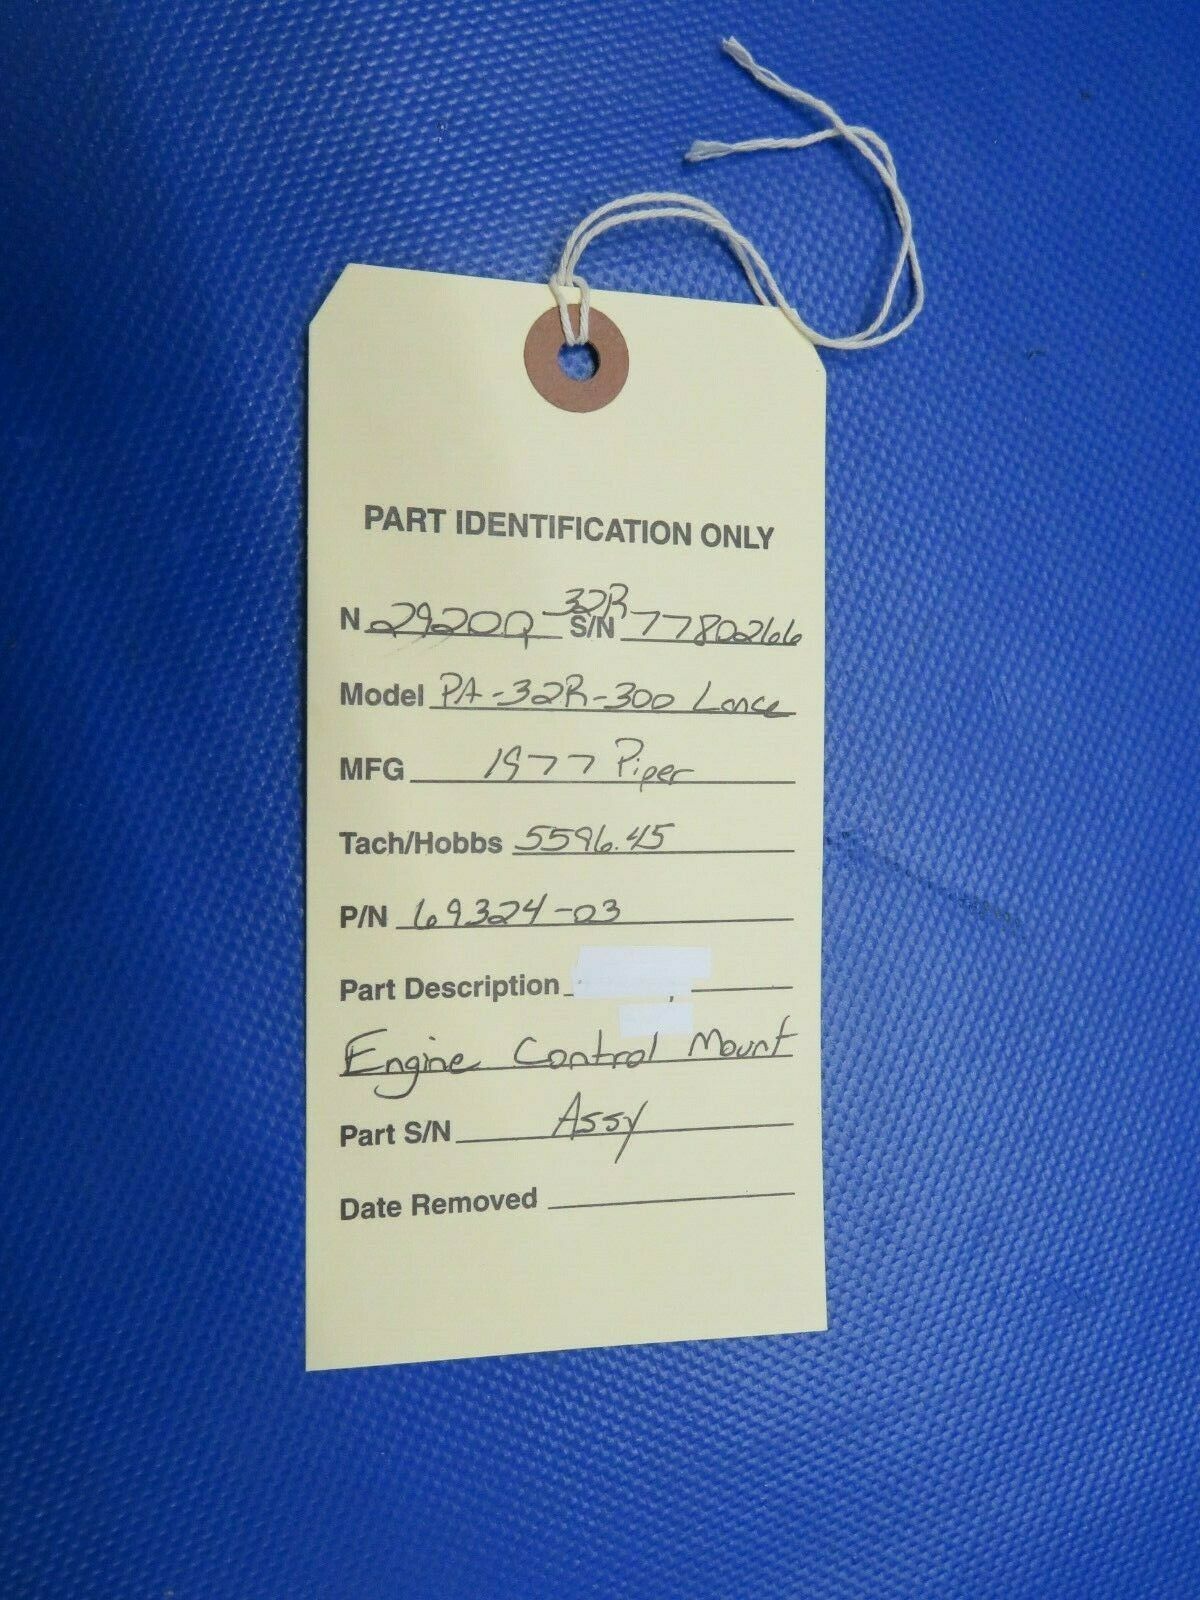 PART IDENTIFICATION ONLY
N 2920Q S/N 32R-7780266
Model PA-32R-300 Lance
MFG 1977 Piper
Tach/Hobbs 5596.45
P/N 69324-03
Part Description
Engine Control Mount
Part S/N Assy
Date Removed